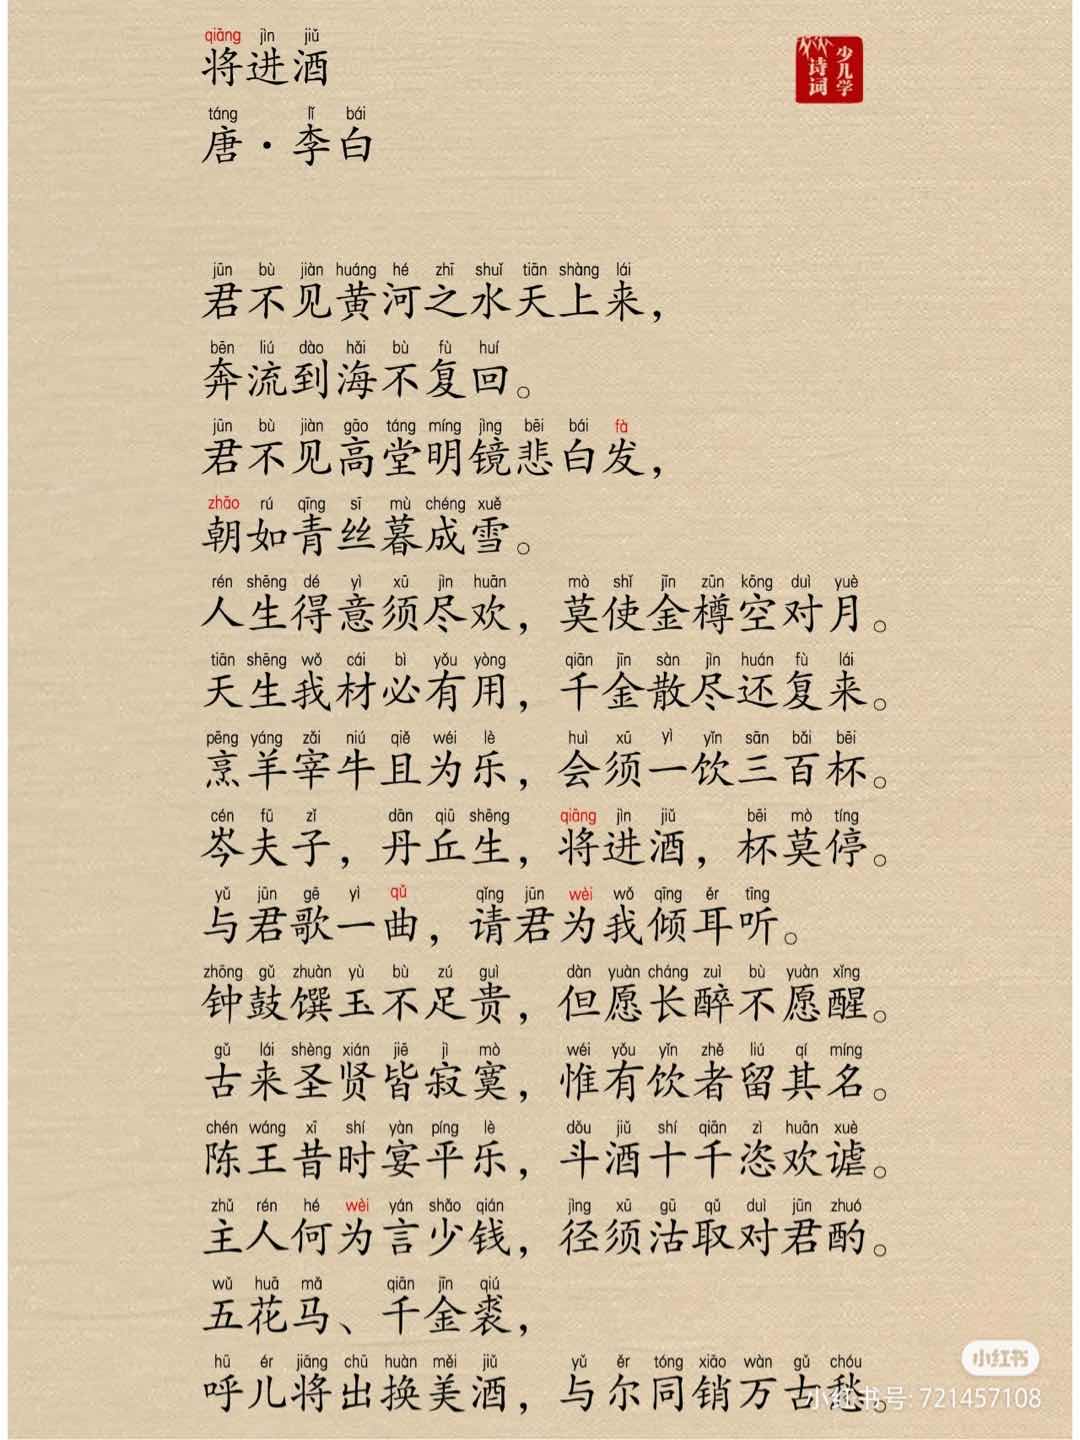 qiāng jìn jiǔ
将进酒
táng lǐ bái
唐·李白
少儿学
诗词
jūn bù jiàn huáng hé zhī shuǐ tiān shàng lái
君不见黄河之水天上来，
bēn liú dào hǎi bù fù huí
奔流到海不复回。
jūn bù jiàn gāo táng míng jìng bēi bái fà
君不见高堂明镜悲白发，
zhāo rú qīng sī mù chéng xuě
朝如青丝暮成雪。
rén shēng dé yì xū jìn huān mò shǐ jīn zūn kōng duì yuè
人生得意须尽欢，莫使金樽空对月。
tiān shēng wǒ cái bì yǒu yòng qiān jīn sàn jìn huán fù lái
天生我材必有用，千金散尽还复来。
pēng yáng zǎi niú qiě wéi lè huì xū yì yǐn sān bǎi bēi
烹羊宰牛且为乐，会须一饮三百杯。
cén fū zǐ dān qiū shēng qiāng jìn jiǔ bēi mò tíng
岑夫子，丹丘生，将进酒，杯莫停。
yǔ jūn gē yì qǔ qǐng jūn wèi wǒ qīng ěr tīng
与君歌一曲，请君为我倾耳听。
zhōng gǔ zhuàn yù bù zú guì dàn yuàn cháng zuì bù yuàn xǐng
钟鼓馔玉不足贵，但愿长醉不愿醒。
gǔ lái shèng xián jiē jì mò wéi yǒu yǐn zhě liú qí míng
古来圣贤皆寂寞，惟有饮者留其名。
chén wáng xī shí yàn píng lè dǒu jiǔ shí qiān zì huān xuè
陈王昔时宴平乐，斗酒十千恣欢谑。
zhǔ rén hé wèi yán shǎo qián jìng xū gū qǔ duì jūn zhuó
主人何为言少钱，径须沽取对君酌。
wǔ huā mǎ qiān jīn qiú
五花马、千金裘，
hū ér jiāng chū huàn měi jiǔ yǔ ěr tóng xiāo wàn gǔ chóu
呼儿将出换美酒，与尔同销万古愁。
小红书
小红书号: 721457108